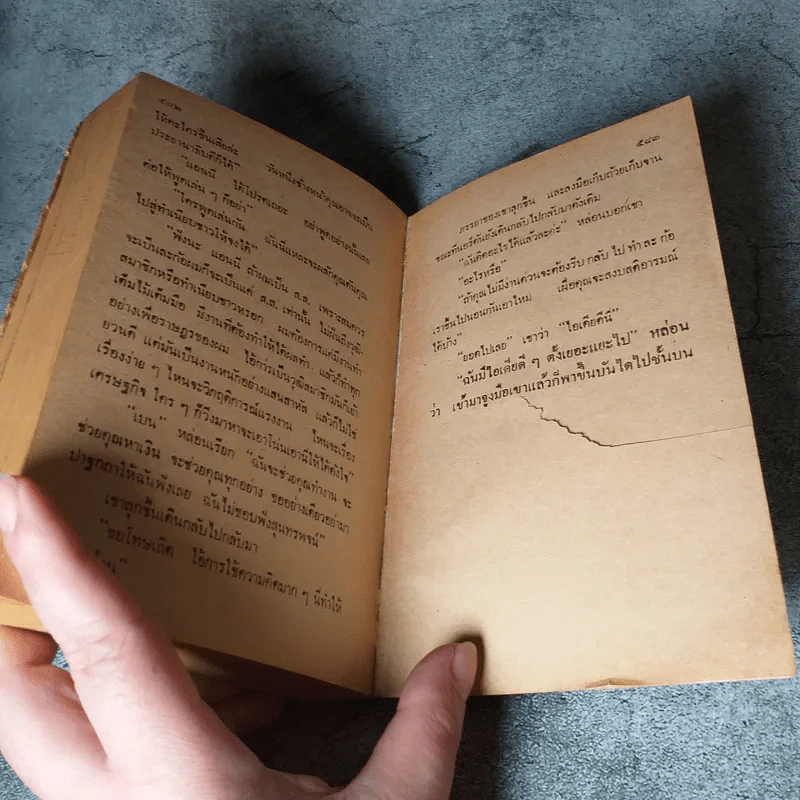 ๕๘๒
ให้ตะไคร่ขึ้นเสียล่ะ วันหนึ่งข้างหน้าคุณอาจจะเป็น
ประธานาธิบดีก็ได้"
"แอนนี่ ได้โปรดเถอะ อย่าพูดอย่างนั้นเลย
ต่อให้พูดเล่น ๆ ก็อย่า"
"ใครพูดเล่นกัน ฉันนี่แหละจะผลักคุณดันคุณ
ไปสู่ทำเนียบขาวให้จงได้"
"ฟังนะ แอนนี่ ถ้าผมเป็น ส.ส. เพราะสมควร
จะเป็นละก้อผมก็จะเป็นแค่ ส.ส. เท่านั้น ไม่ฝันถึงวุฒิ-
สมาชิกหรือทำเนียบขาวหรอก ผมต้องการแค่มีงานทำ
เต็มไม้เต็มมือ มีงานที่ต้องทำให้ได้ผลทำ แล้วก็ทำทุก
อย่างเพื่อราษฎรของผม ไอ้การเป็นวุฒิสมาชิกมันก็เย้า
ยวนดี แต่มันเป็นงานหนักอย่างแสนสาหัส แล้วก็ไม่ใช่
เรื่องง่าย ๆ ไหนจะวิกฤติการณ์แรงงาน ไหนจะเรื่อง
เศรษฐกิจ ใคร ๆ ก็วิ่งมาหาจะเอาโน่นเอานี่ให้ได้ดังใจ"
"เบน" หล่อนเรียก "ฉันจะช่วยคุณทำงาน จะ
ช่วยคุณหาเงิน จะช่วยคุณทุกอย่าง ขออย่างเดียวอย่ามา
ปาฐกถาให้ฉันฟังเลย ฉันไม่ชอบฟังสุนทรพจน์"
เขาลุกขึ้นเดินกลับไปกลับมา
"ขอโทษเถิด ไอ้การใช้ความคิดมาก ๆ นี่ทำให้
๕๘๓
ภรรยาของเขาลุกขึ้น และลงมือเก็บถ้วยเก็บจาน
ขณะที่นอร์ตันยังเดินกลับไปกลับมาดังเดิม
"ฉันคิดอะไรได้แล้วละค่ะ" หล่อนบอกเขา
"อะไรหรือ"
"ถ้าคุณไม่มีงานด่วนจะต้องรีบ กลับ ไป ทำ ละ ก้อ
เราขึ้นไปนอนกันเอาไหม เผื่อคุณจะสงบสติอารมณ์
ได้บ้าง"
"ยอดไปเลย" เขาว่า "ไอเดียดีนี่"
"ฉันมีไอเดียดี ๆ ตั้งเยอะแยะไป" หล่อน
ว่า เข้ามาจูงมือเขาแล้วก็พาขึ้นบันไดไปชั้นบน